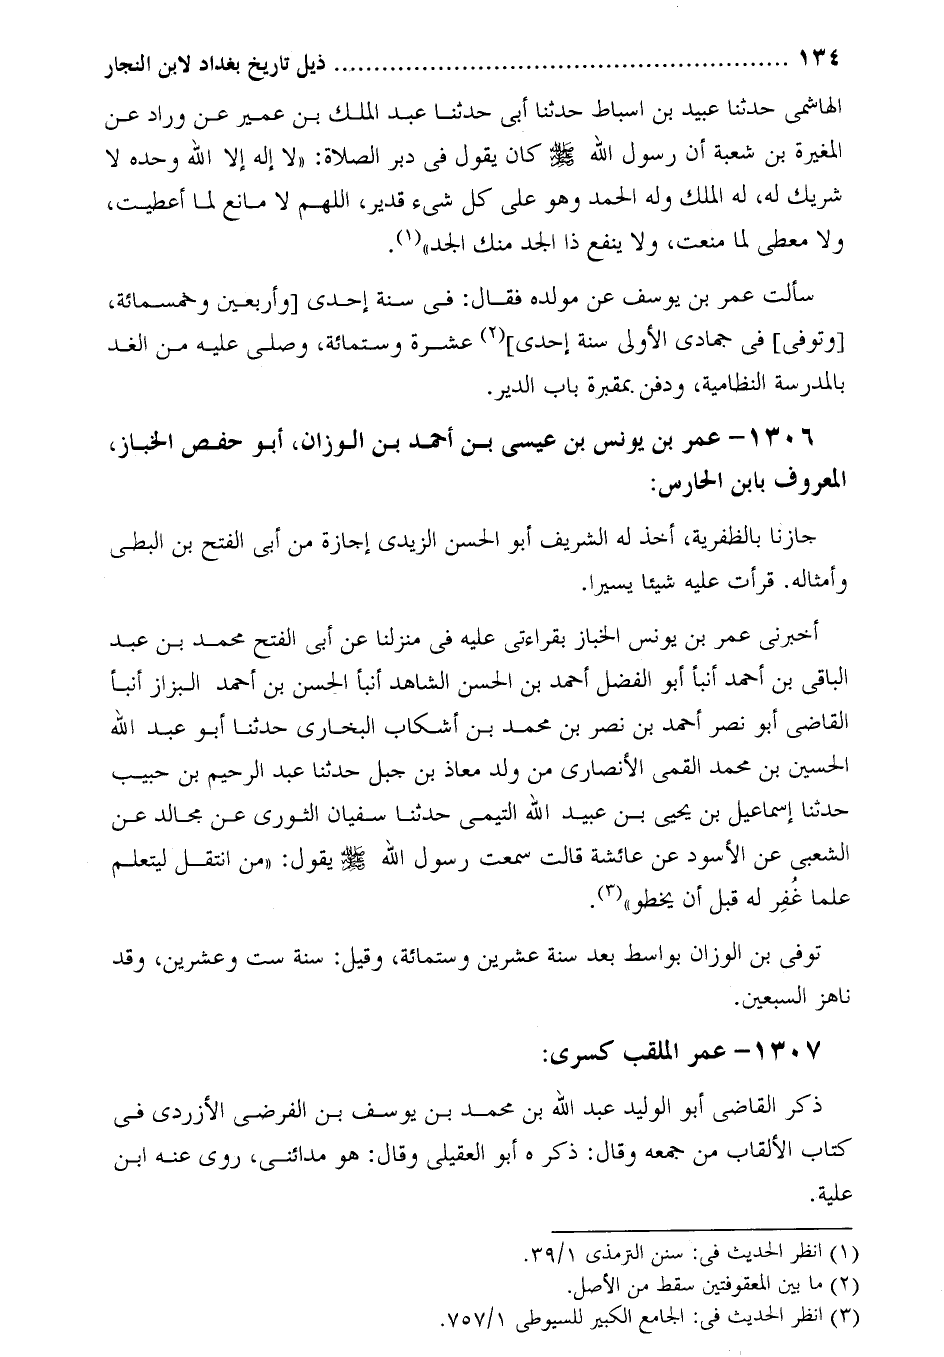 ١٣٤ ............................................................ ذيل تاريخ بغداد لابن النجار
الهاشمى حدثنا عبيد بن اسباط حدثنا أبى حدثنا عبد الملك بن عمير عن وراد عن
المغيرة بن شعبة أن رسول الله ﷺ كان يقول فى دبر الصلاة: «لا إله إلا الله وحده لا
شريك له، له الملك وله الحمد وهو على كل شىء قدير، اللهم لا مانع لما أعطيت،
ولا معطى لما منعت، ولا ينفع ذا الجد منك الجد»(١).
سألت عمر بن يوسف عن مولده فقال: فى سنة إحدى [وأربعين وخمسمائة،
[وتوفى] فى جمادى الأولى سنة إحدى](٢) عشرة وستمائة، وصلى عليه من الغد
بالمدرسة النظامية، ودفن بمقبرة باب الدير.
١٣٠٦- عمر بن يونس بن عيسى بن أحمد بن الوزان، أبو حفص الخباز،
المعروف بابن الحارس:
جازنا بالظفرية، أخذ له الشريف أبو الحسن الزيدى إجازة من أبى الفتح بن البطى
وأمثاله. قرأت عليه شيئا يسيرا.
أخبرنى عمر بن يونس الخباز بقراءتى عليه فى منزلنا عن أبى الفتح محمد بن عبد
الباقى بن أحمد أنبأ أبو الفضل أحمد بن الحسن الشاهد أنبأ الحسن بن أحمد البزاز أنبأ
القاضى أبو نصر أحمد بن نصر بن محمد بن أشكاب البخارى حدثنا أبو عبد الله
الحسين بن محمد القمى الأنصارى من ولد معاذ بن جبل حدثنا عبد الرحيم بن حبيب
حدثنا إسماعيل بن يحيى بن عبيد الله التيمى حدثنا سفيان الثورى عن مجالد عن
الشعبى عن الأسود عن عائشة قالت سمعت رسول الله ﷺ يقول: «من انتقل ليتعلم
علما غُفِر له قبل أن يخطو»(٣).
توفى بن الوزان بواسط بعد سنة عشرين وستمائة، وقيل: سنة ست وعشرين، وقد
ناهز السبعين.
١٣٠٧- عمر الملقب كسرى:
ذكر القاضى أبو الوليد عبد الله بن محمد بن يوسف بن الفرضى الأزردى فى
كتاب الألقاب من جمعه وقال: ذكر ه أبو العقيلى وقال: هو مدائنى، روى عنه ابن
علية.
(١) انظر الحديث فى: سنن الترمذى ٣٩/١.
(٢) ما بين المعقوفتين سقط من الأصل.
(٣) انظر الحديث فى: الجامع الكبير للسيوطى ٧٥٧/١.